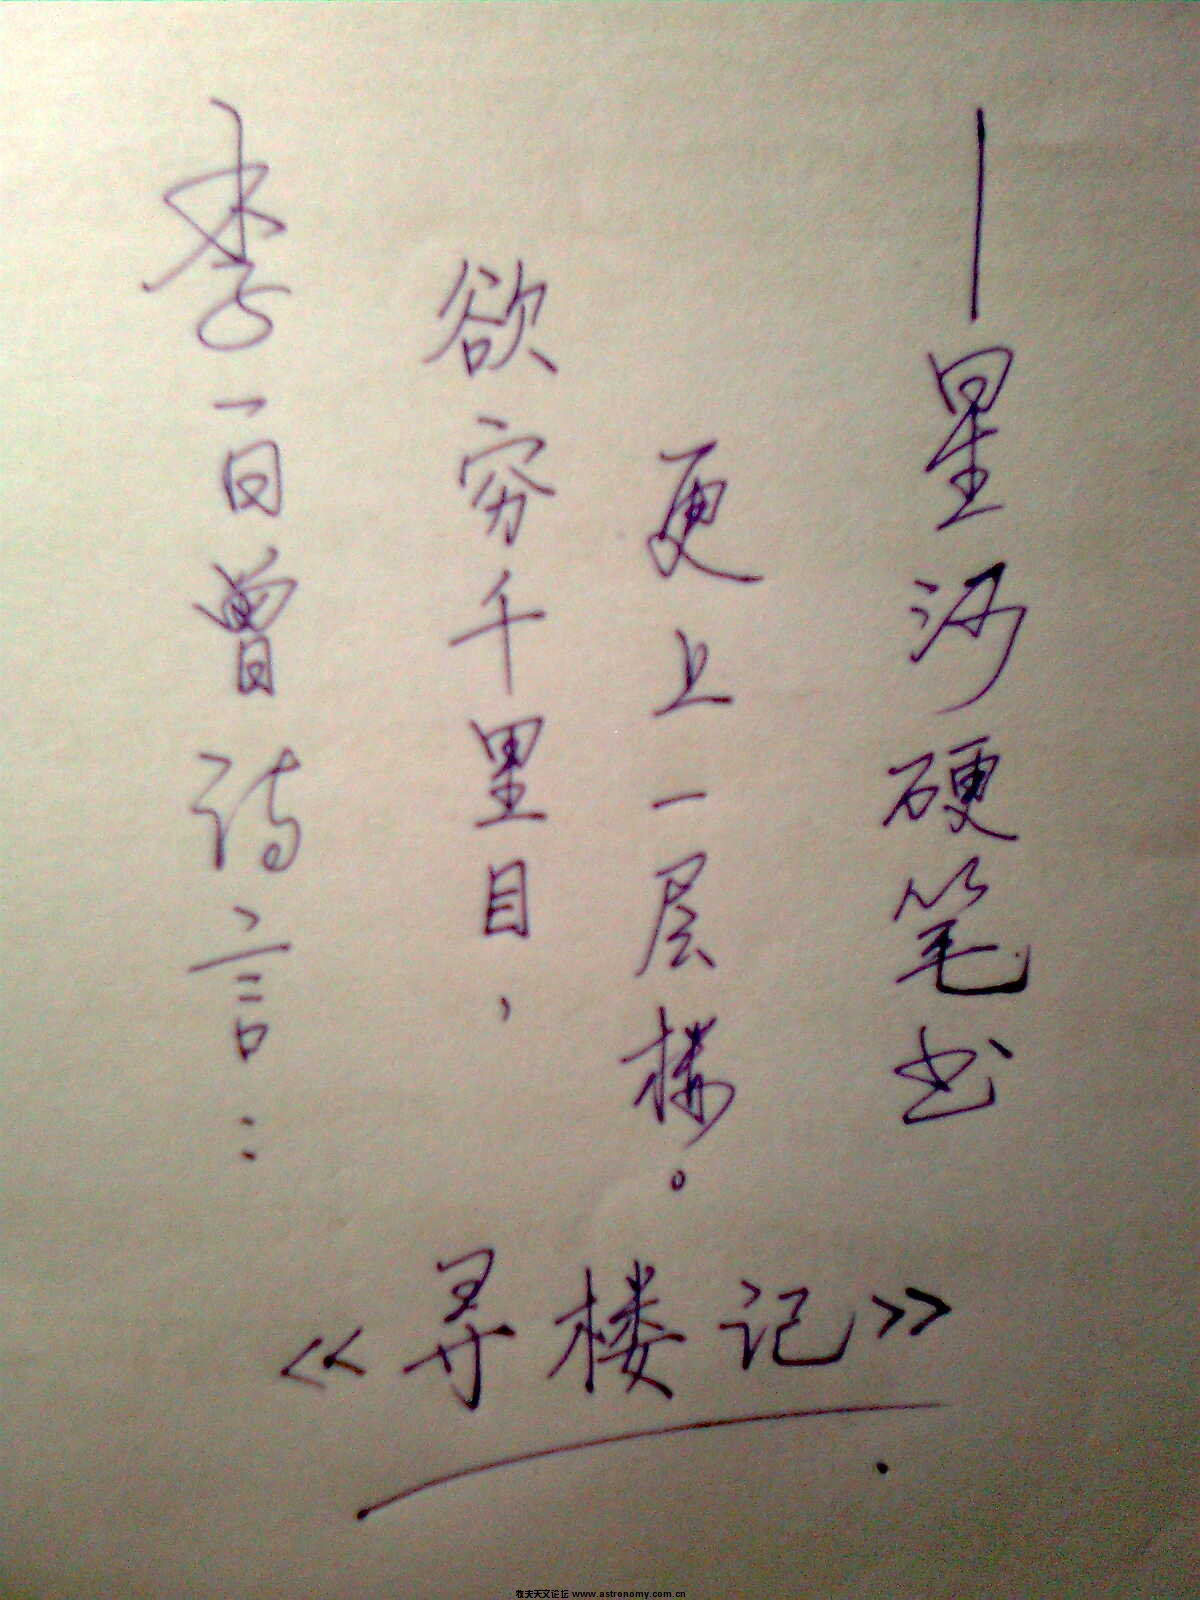 李一日曾诗言：
欲穷千里目，
更上一层楼。
——星沙硬笔书
《寻楼记》
牧夫天文论坛 www.astronomy.com.cn